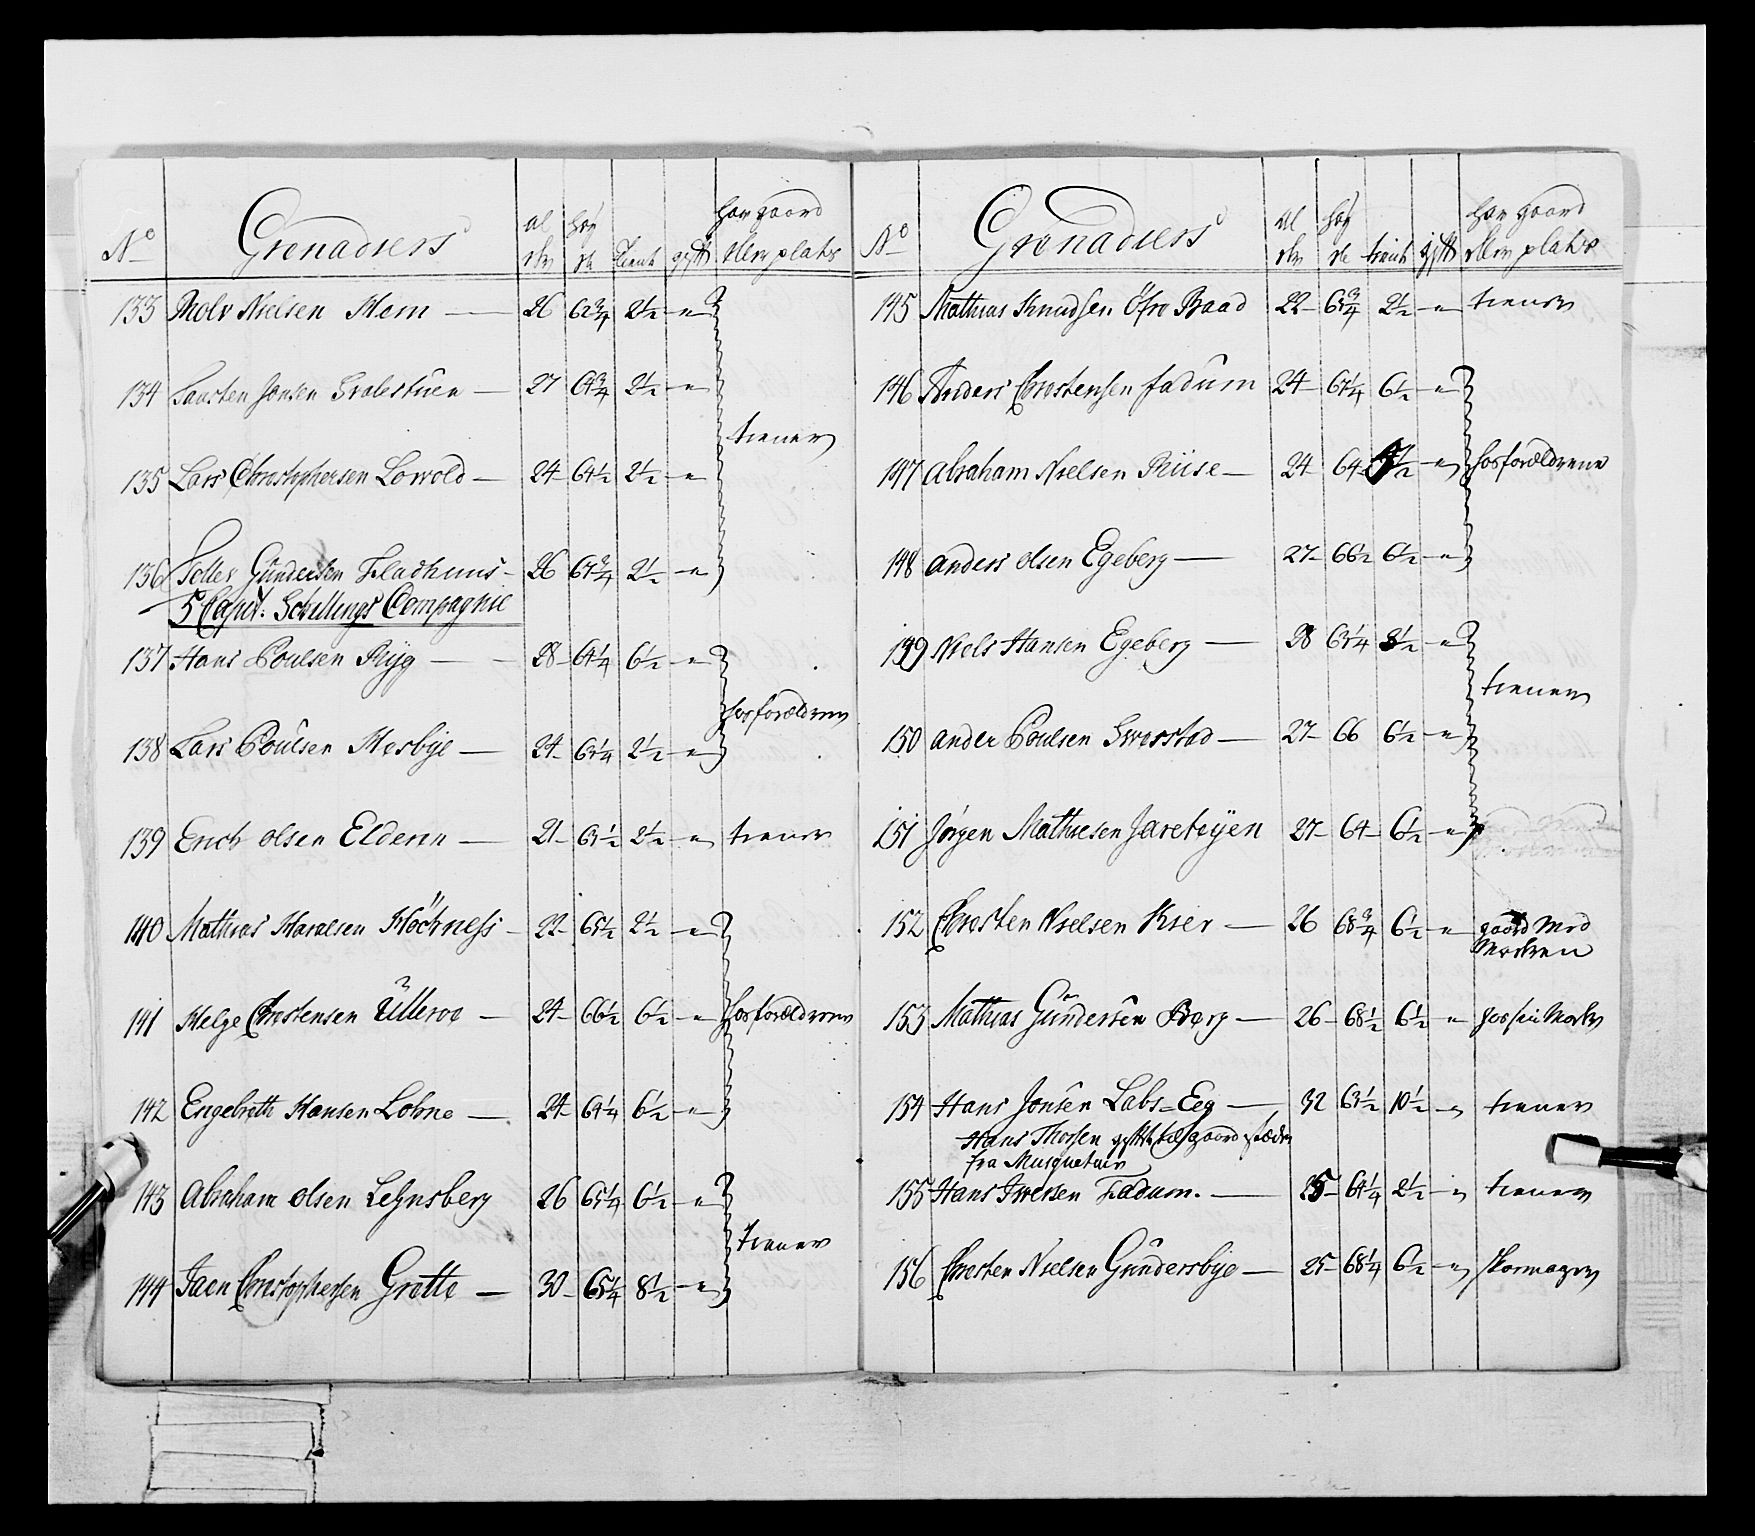 No Grenadiers al der höy de tient gift har gaard eller plads
133 Rolv Nielsen Mem — 26 62¾ 2½ - "
134 Laasten Jonsen Svalestuen — 27 64¾ 2½ - "
tiener
135 Lars Christophersen Lorvold — 24 64½ 2½ - "
136 Peller Gundersen Fladhuus - 26 67¾ 2½ - "
5 Capit: Schillings Compagnie
137 Hans Poulsen Ryg — 28 64¼ 6½ - "
hos forældrene
138 Lars Poulsen Mesbye — 24 63¼ 2½ - "
139 Erich olsen Elderen — 21 63½ 2½ - " tiener
140 Mathias Haraldsen - 22 65½ 2½ - "
141 Helge Christensen Ulleroe — 24 66½ 6½ - " hos forældrene
142 Engebreth Hansen Lobne — 24 64¼ 6½ - "
143 Abraham olsen Lefjnsberg 26 65¼ 6½ - "
tiener
144 Jaen Christophersen Grotte — 30 65¼ 8½ - "
No Grenadiers al der höy de tient gift har gaard eller plads
145 Mathias Knudsen Öfre Raad 22 63¾ 2½ - " tiener
146 Anders Christensen fadum 24 67¼ 6½ - "
147 Abraham Nielsen Riise — 24 64 - " hos forældrene
148 anders olsen Egeberg — 27 66½ 6½ - "
149 Niels Hansen Egeberg — 28 63¼ - "
tiener
150 ander Poulsen Sverstad — 27 66 6½ - "
151 Jörgen Mathiesen Jareteyen 27 64 6½ - "
152 Christen Nielsen Kier — 26 68¾ 6½ - " gaard Med Moderen
153 Mathias Gundersen Berg — 26 68½ 6½ " hos sin Moder
154 Hans Jonsen Labs=Eeg — 32 63½ 10½ - " tiener
Hans Thorsen gaard
fra Musqueteer
155 Hans Iversen Fadum. — 25 64¼ 2½ - " tiener
156 Christen Nielsen Gundersbye — 25 68¼ 6½ - " skomager